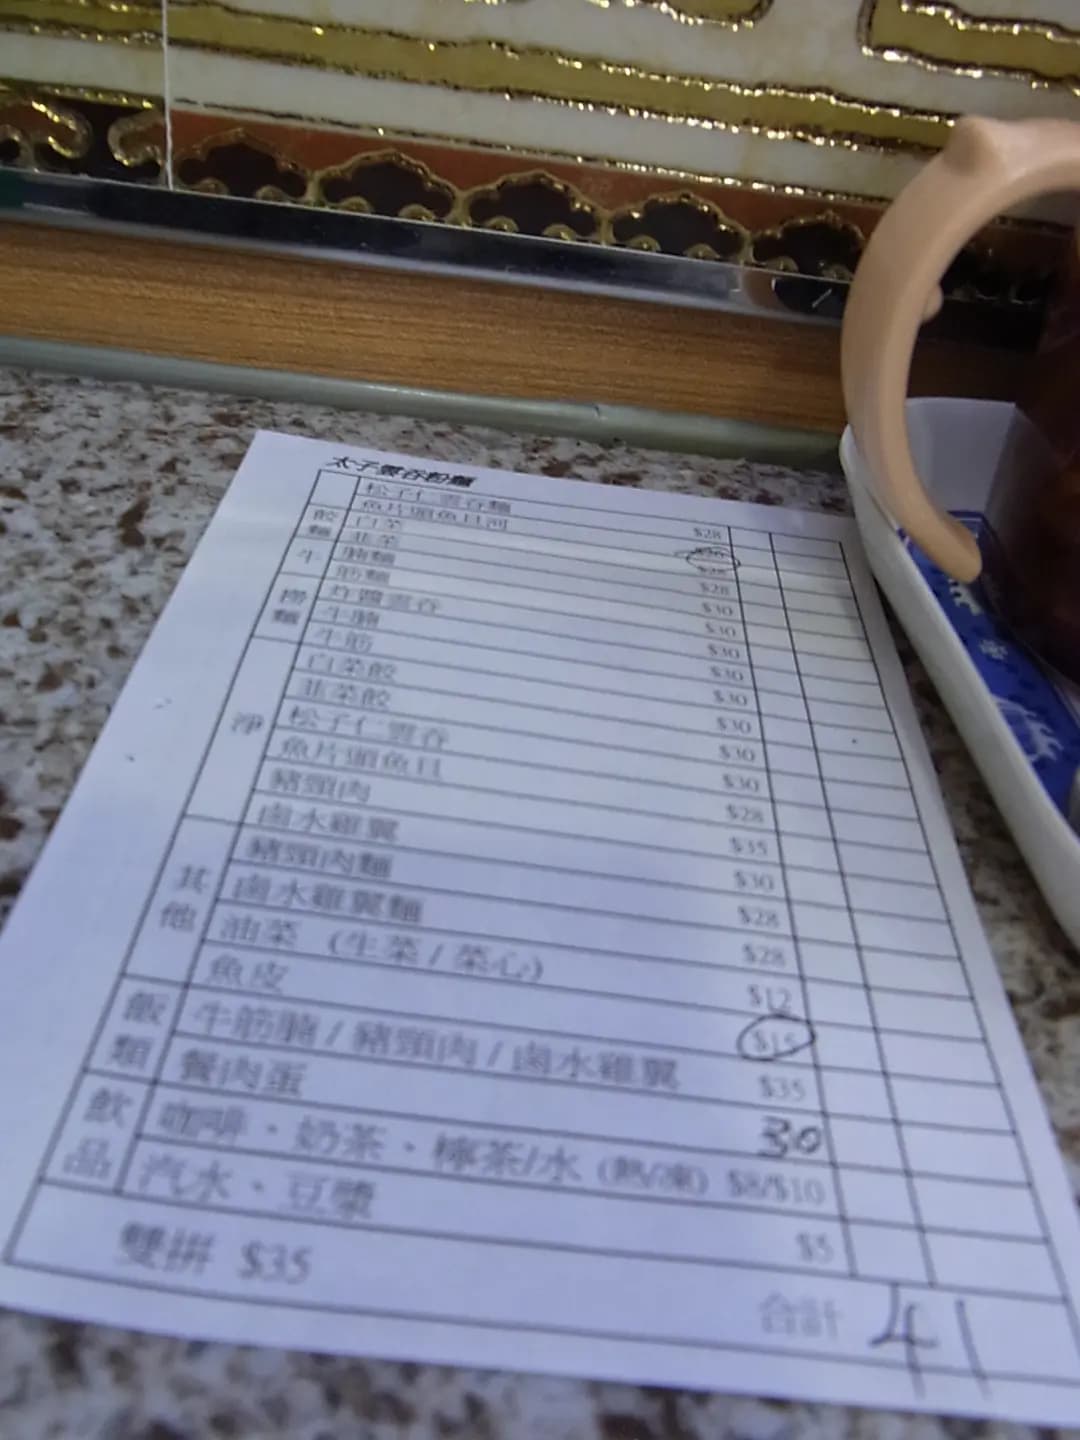 太子雲吞粉麵
松子仁雲吞麵 $28
魚片頭魚旦河
餃麵 白菜 $28
韭菜 $28
牛 腩麵 $30
筋麵 $30
撈麵 炸醬雲吞 $30
牛腩 $30
牛筋 $30
淨 白菜餃 $30
韭菜餃 $30
松子仁雲吞 $30
魚片頭魚旦 $28
豬頸肉 $35
鹵水雞翼 $30
其他 豬頸肉麵 $28
鹵水雞翼麵 $28
油菜 (生菜 / 菜心) $12
魚皮 $15
飯類 牛筋腩 / 豬頸肉 / 鹵水雞翼 $35
餐肉蛋 30
飲品 咖啡、奶茶、檸茶/水 (熱/凍) $8/$10
汽水、豆漿 $5
雙拼 $35
合計 41